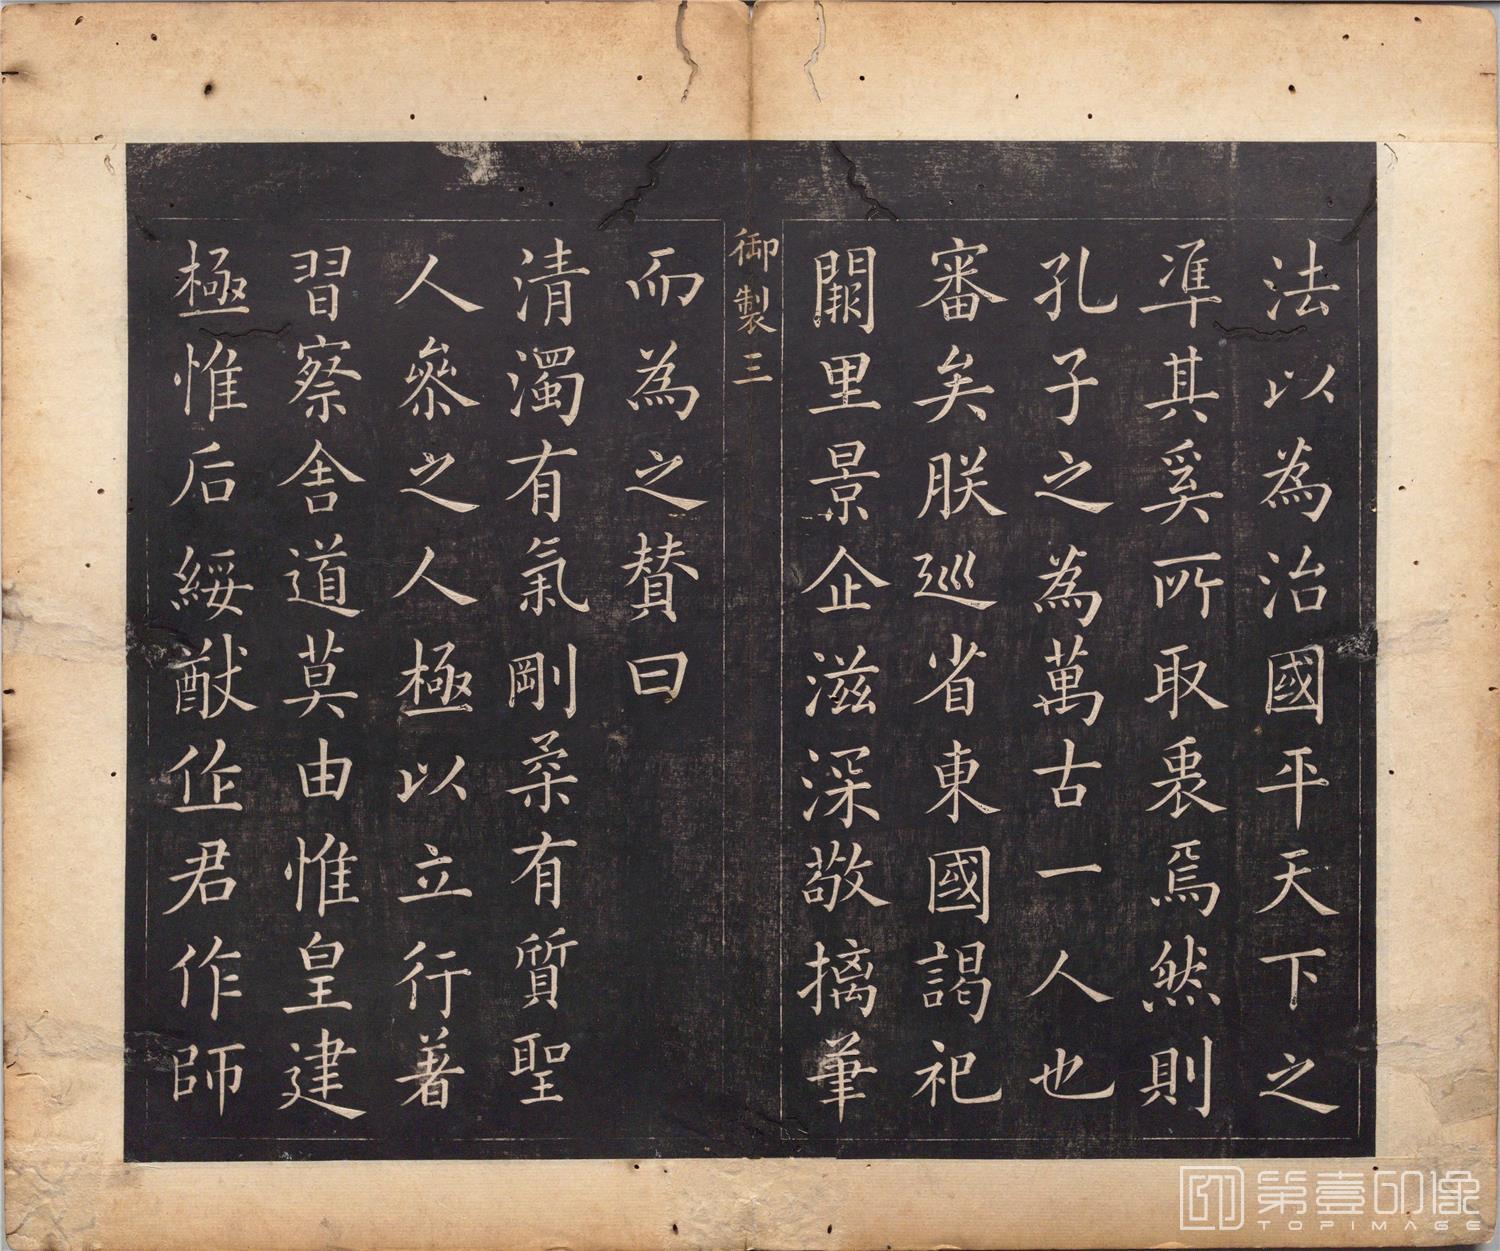 法以為治國平天下之
準其奚所取衷焉然則
孔子之為萬古一人也
審矣朕巡省東國謁祀
闕里景企滋深敬摛筆
御製三
而為之贊曰
清濁有氣剛柔有質聖
人參之人極以立行著
習察舍道莫由惟皇建
極惟后綏猷作君作師
第壹印像
TOPIMAGE